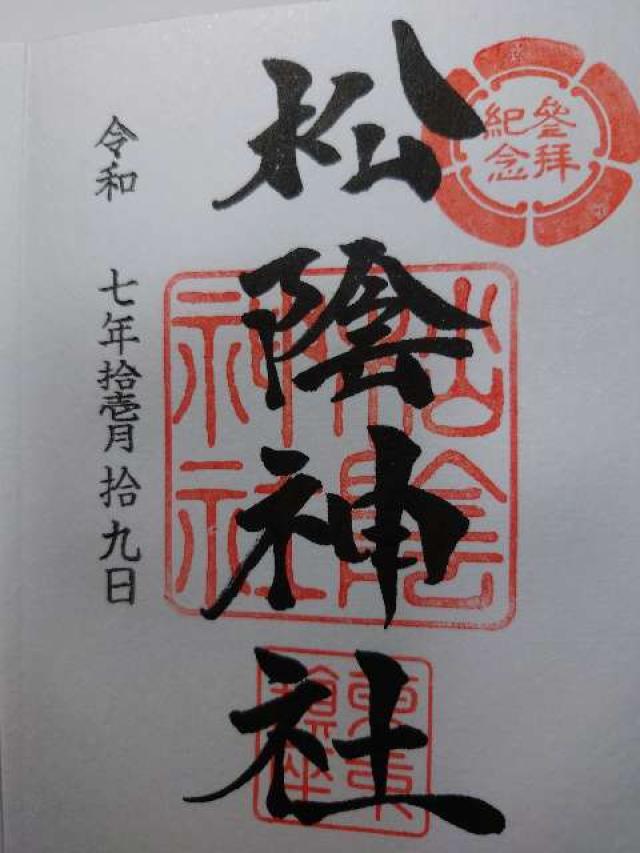 參拜
紀念
松陰神社
松陰
神社
令和 七年拾壱月拾九日